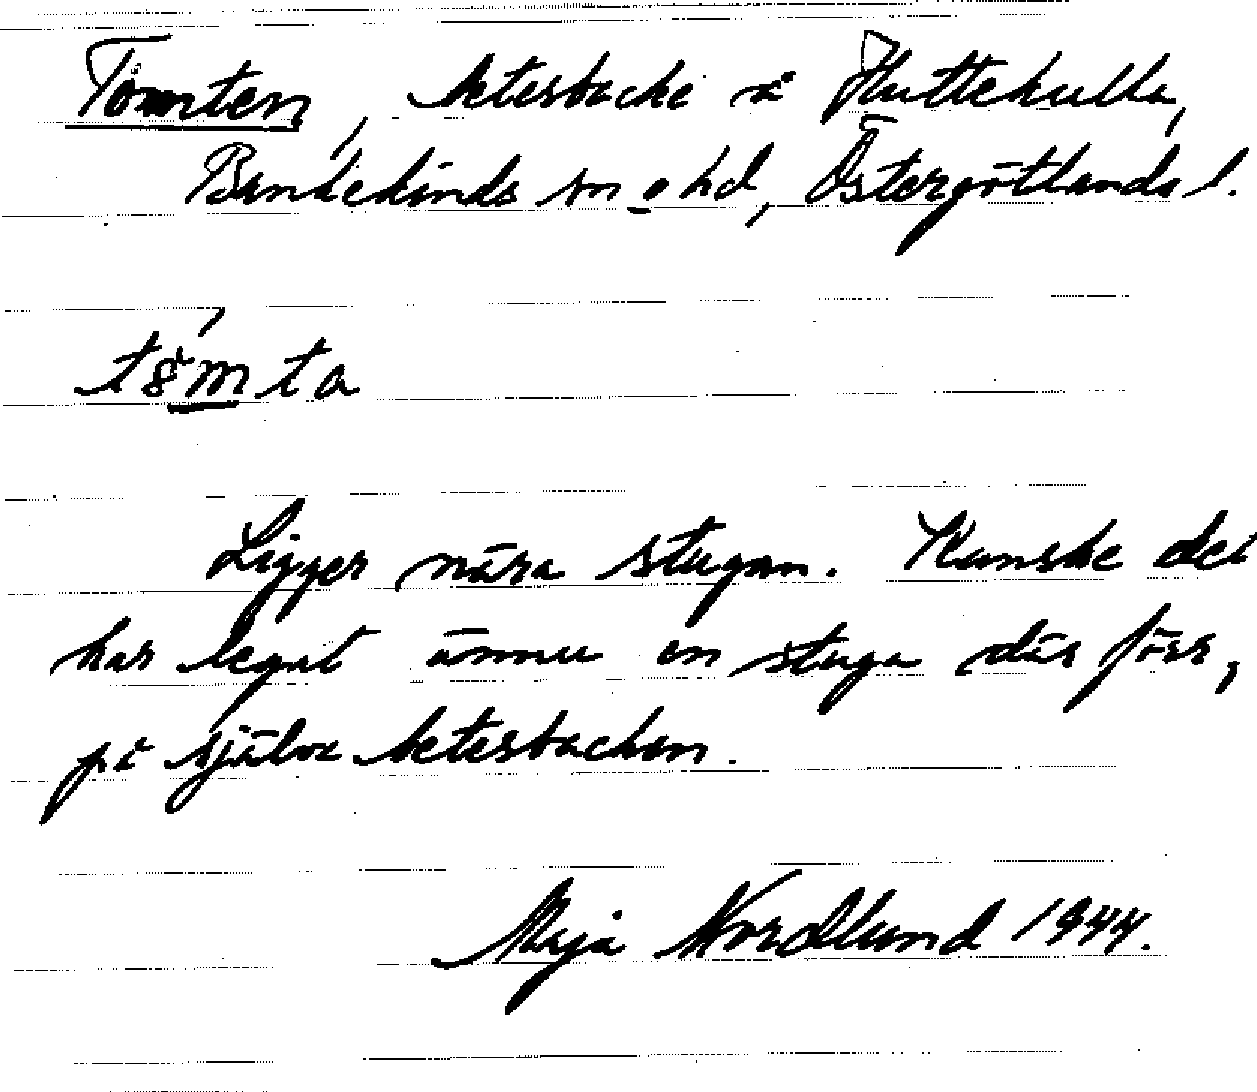 Tomten, betesbacke å Huttekulla,
Bankekinds sn o hd, Östergötlands l.
tǒ´mta
Ligger nära stugan. Kanske det
har legat ännu en stuga där förr,
på själva betesbacken.
Maja Nordlund 1944.